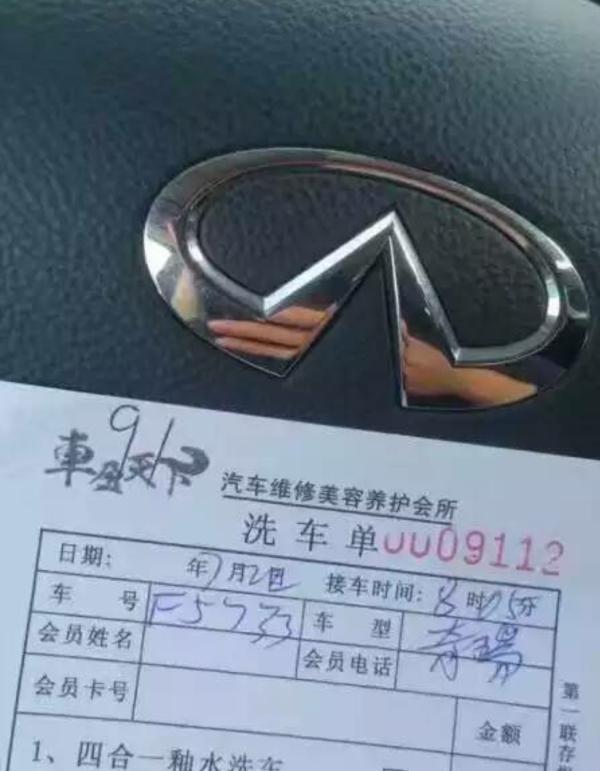 91
車盈天下
汽车维修美容养护会所
洗车单 0009112
日期: 年7月2日 接车时间: 8时05分
车号 F5733 车型 奇瑞
会员姓名 会员电话
会员卡号
金额
1、四合一釉水洗车
第一联存根